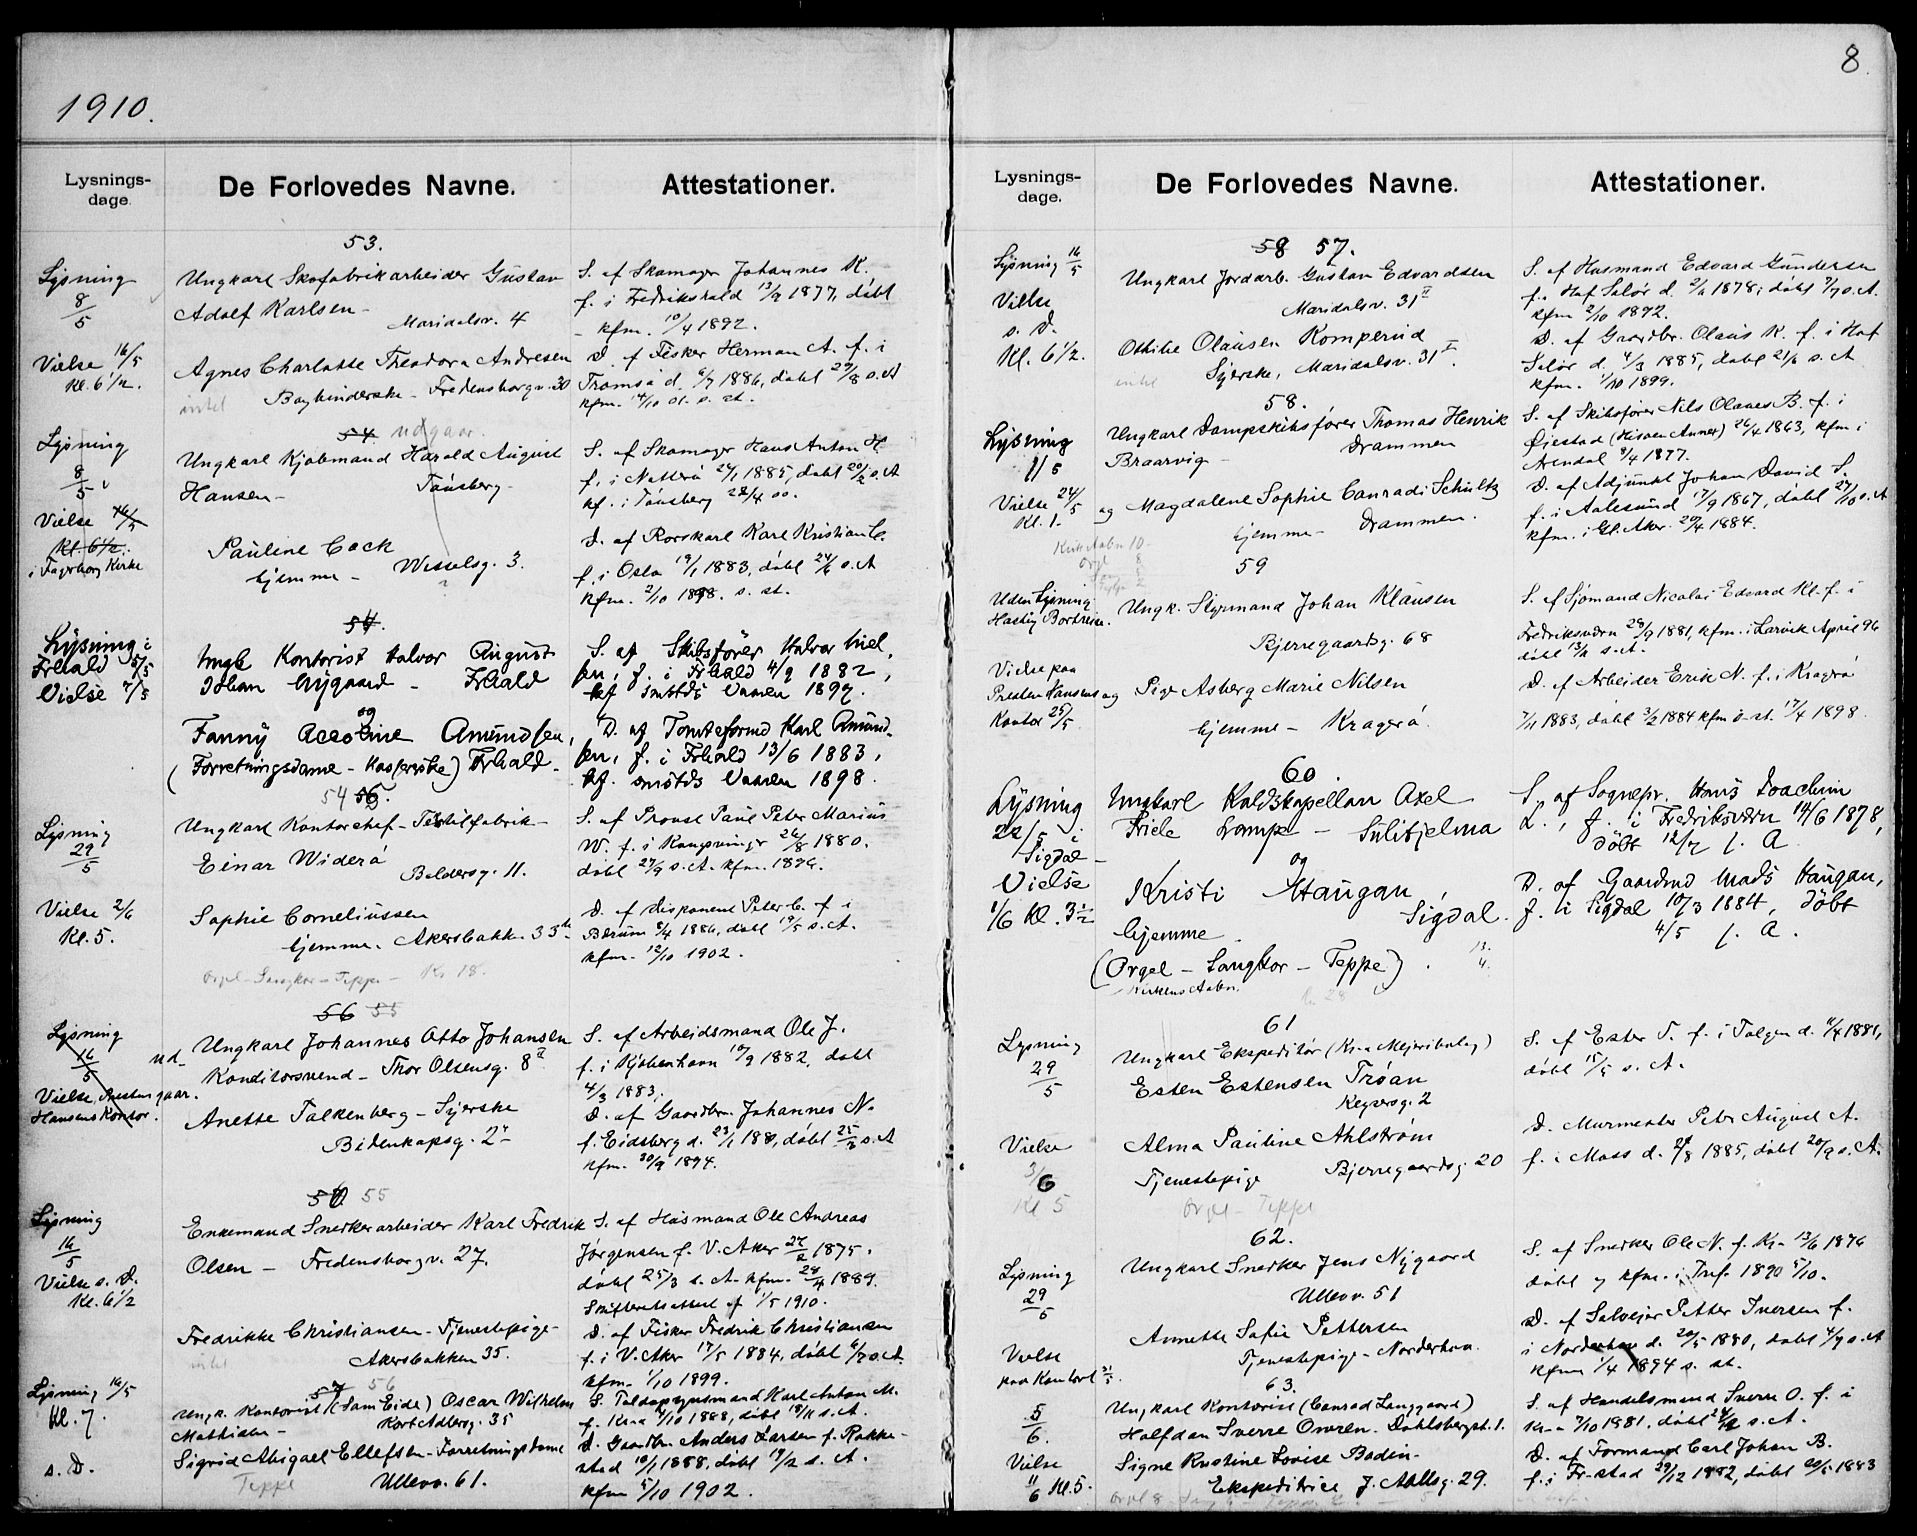 1910.
8
Lysnings-
dage
De Forlovedes Navne.
Attestationer.
53.
Lysning
8/5
Vielse 16/5
Kl. 6 1/2.
Ungkarl Skofabrikarbeider Gustav
Adolf Karlsen -
Maridalsv. 4
Agnes Charlotte Theodora Andresen
Bogbinderske - Fredensborgv. 30
S. af Skomager Johannes K.
f. i Fredrikshald 13/9 1877, døbt
- kfm. 10/4 1892.
D. af Fisker Herman A. f. i
Tromsø d. 6/7 1886, døbt 29/8 s. A
kfm. 14/10 01. s. st.
54. udgaar.
Lysning
8/5
Vielse 16/5
Kl. 6 1/2.
i Fagerborg Kirke
Ungkarl Kjøbmand Harald August
Hansen -
Tønsberg -
Pauline Cock
hjemme - Wesselsg. 3.
S. af Skomager Hans Anton H
f. i Nøtterø 24/1 1885, døbt 20/2 s. A
kf. i Tønsberg 22/4 00.
D. af Rorskarl Karl Kristian C.
f. i Oslo 19/1 1883, døbt 24/6 s. A
kfm. 2/10 1898. s. st.
54.
Lysning i
Frhald 5/5
Vielse 7/5
Ungk Kontorist Halvor August
Johan Nygaard - Frhald
og
Fanny Acoline Amundsen,
(Forretningsdame - Kasjererske) Frhald.
S. af Skibsfører Halvor Niel-
sen, f. i Frhald 4/9 1882,
kf smstds Vaaren 1897.
D. af Tomteformd Karl Amund-
sen, f. i Frhald 13/6 1883,
kf. smstds Vaaren 1898.
54 56.
Lysning
29/5
Vielse 2/6
Kl. 5.
Ungkarl Kontorchef - Textilfabrik -
Einar Widerø
Baldersg. 11.
Sophie Corneliussen
hjemme. Akersbakk. 33
Orgel - Sangkor - Teppe - Kr 18.
S. af Provst Paul Peter Marius
W. f. i Kongsvinger 26/8 1880.
døbt 27/9 s. A. kfm. 1896.
D. af Disponent Peter C. f i
Bærum 8/4 1886, døbt 19/5 s. A.
kfm. 12/10 1902.
56 55
Lysning
16/5
Vielse, Presten
Hansens Kontor.
ud-
gaar.
Ungkarl Johannes Otto Johansen
Konditorsvend - Thor Olsensg. 8 II
Anette Falkenberg - Syerske
Bidenkapsg. 2
S. af Arbeidsmand Ole J.
f. i Kjøbenhavn 10/9 1882, døbt
4/3 1883,
D. af Gaardbr. Johannes N.
f. Eidsberg d. 23/1 188, døbt 25/3 s. A
kfm. 30/9 1894.
56 55
Lysning
16/5
Vielse s. D.
Kl. 6 1/2
Enkemand Snedkerarbeider Karl Fredrik
Olsen - Fredensborgv. 27.
Fredrikke Christiansen - Tjenestepige -
Akersbakken 35.
S. af Husmand Ole Andreas
Jørgensen f. V. Aker 27/2 1875.
døbt 25/3 s. A. kfm. 28/4 1889.
Skifteretsattest af 1/5 1910.
D. af Fisker Fredrik Christiansen
f. i V. Aker 17/5 1884, døbt 6/7 s. A.
kfm. 1/10 1899.
57 56
Lysning 16/5
Kl. 7.
s. D.
Ungk. Kontorist (Sam Eide) Oscar Wilhelm
Mathisen - Kort Adlersg. 35
Sigrid Abigael Ellefsen - Forretningsdame
Teppe
Ullevv. 61.
S. Toldopsynsmand Karl Anton M.
f. Kr.a 4/10 1888, døbt 18/11 s. A.
D. Gaardbr. Anders Larsen f. Rakke-
stad 10/1 1888, døbt 19/2 s. A.
kfm 5/10 1902.
Lysnings-
dage.
De Forlovedes Navne.
Attestationer.
58 57.
Lysning 16/5
Vielse
s. D.
Kl. 6 1/2.
Ungkarl Jordarb. Gustav Edvardsen
Maridalsv. 31 II
Othilie Olausen Komperud
Syerske, Maridalsv. 31 I
S. af Husmand Edvard Gundersen
f. Hof Solør d. 2/6 1878, døbt 7/7 s. A.
kfm 2/10 1892.
D. af Gaardbr. Olaus K. f. i Hof
Solør d. 4/3 1885, døbt 21/6 s. A
kfm. 1/10 1899.
58.
Lysning
1/5
Vielse 24/5
Kl. 1.
Ungkarl Dampskibsfører Thomas Henrik
Braarvig -
Drammen
og Magdalene Sophie Conradi Schultz
hjemme - Drammen.
Kirk Aabn 10 -
Orgl 8
S. af Skibsfører Nils Olaves B. f. i
Øiestad (Hisøen Annex) 26/4 1863, kfm i
Arendal 8/4 1877.
D. af Adjunkt Johan David S.
f. i Aalesund 17/9 1867, døbt 27/10 s. A
kfm. i Gl. Aker 20/4 1884.
59
Uden Lysning
Hastig Bortreise.
Vielse paa
Presten Hansens
Kontor 25/5
Ungk. Styrmand Johan Klausen
Bjerregaardsg. 68
og Pige Asberg Marie Nilsen
hjemme - Kragerø.
S. af Sjømand Nicolai Edvard Kl. f. i
Fredriksværn 28/9 1881, kfm. i Larvik April 96
døbt 13/11 s. A.
D. af Arbeider Erik N. f. i Kragerø
7/11 1883, døbt 3/2 1884 kfm s. st. 17/4 1898.
60.
Lysning
22/5 i
Sigdal -
Vielse
1/6 Kl. 3 1/2
Ungkarl Kaldskapellan Axel
Friele Lampe - Sulitjelma
og
Kristi Haugan,
hjemme
Sigdal.
(Orgel - Sangkor - Teppe).
Kirkens Aabn.
S. af Sognepr. Hans Joachim
L., f. i Fredriksværn 14/6 1878,
døbt 12/7 s. A.
D. af Gaardmd Mads Haugan,
f. i Sigdal 10/3 1884, døbt
4/5 s. A.
61
Lysning
29/5
Vielse
3/6
Kl 5
Ungkarl Ekspeditør (Kr.a Mejeribolag)
Esten Estensen Trøan
Keysersg. 2
Alma Pauline Ahlstrøm
Tjenestepige Bjerregaardsg. 20
Orgel - Teppe
S. af Esten T. f. i Tolgen d. 11/4 1881,
døbt 15/5 s. A.
D. Murmester Peter August A.
f. i Moss d. 28/8 1885, døbt 20/9 s. A.
62.
Lysning
29/5
Vielse
paa Kontoret 31/5.
Ungkarl Snedker Jens Nygaard
Ullevv. 51
Annette Sofie Pettersen
Tjenestepige - Norderhov.
S. af Snedker Ole N. f. Kr.a 13/6 1876
døbt og kfm. i Tref. 1890 5/10.
D. af Selveier Petter Iversen f.
i Norderhov d. 20/5 1880, døbt 4/7 s. A
kfm 1/4 1894 s. st.
63.
5/6.
Vielse
11/6 Kl. 5.
Ungkarl Kontorist (Conrad Langgaard)
Halfdan Sverre Overen. Dahlsbergst. 1.
Signe Kristine Lovise Bodin -
Ekspeditrice J. Aallsg. 29.
S. af Handelsmand Sverre O. f. i
Kr.a 7/10 1881. døbt s. A.
D. af Formand Carl Johan B.
f. i Fr.stad 29/12 1882, døbt 20/5 1883